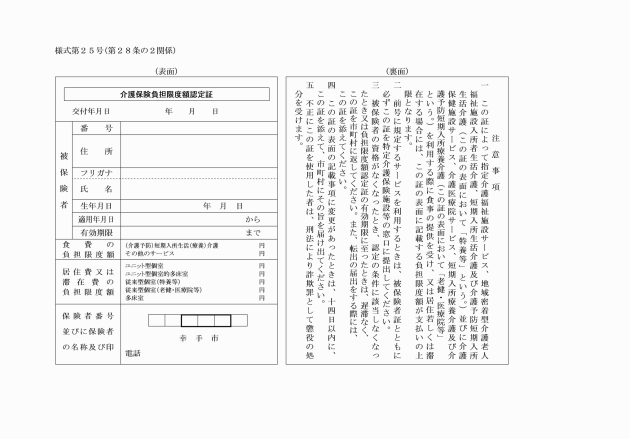 様式第２５号(第２８条の２関係)
(表面)
介護保険負担限度額認定証
交付年月日　年　月　日
被保険者
番　号
住　所
フリガナ
氏　名
生年月日　年　月　日
適用年月日　から
有効期限　まで
食費の
負担限度額
(介護予防)短期入所生活(療養)介護　円
その他のサービス　円
居住費又は
滞在費の
負担限度額
ユニット型個室　円
ユニット型個室的多床室　円
従来型個室(特養等)　円
従来型個室(老健・医療院等)　円
多床室　円
保険者番号
並びに保険者
の名称及び印
幸手市
電話
(裏面)
注意事項
一　この証によって指定介護福祉施設サービス、地域密着型介護老人
福祉施設入所者生活介護、短期入所生活介護及び介護予防短期入所
生活介護（この証の表面において「特養等」という。）並びに介護
保健施設サービス、介護医療院サービス、短期入所療養介護及び介
護予防短期入所療養介護（この証の表面において「老健・医療院等」
という。）を利用する際に食事の提供を受け、又は居住若しくは滞
在する場合には、この証の表面に記載する負担限度額が支払いの上
限となります。
二　前号に規定するサービスを利用するときは、被保険者証とともに
必ずこの証を特定介護保険施設等の窓口に提出してください。
三　被保険者の資格がなくなったとき、認定の条件に該当しなくなっ
たとき又は負担限度額認定証の有効期限に至ったときは、遅滞なく、
この証を市町村に返してください。また、転出の届出をする際には、
この証を添えてください。
四　この証の表面の記載事項に変更があったときは、十四日以内に、
この証を添えて、市町村にその旨を届け出てください。
五　不正にこの証を使用した者は、刑法により詐欺罪として懲役の処
分を受けます。